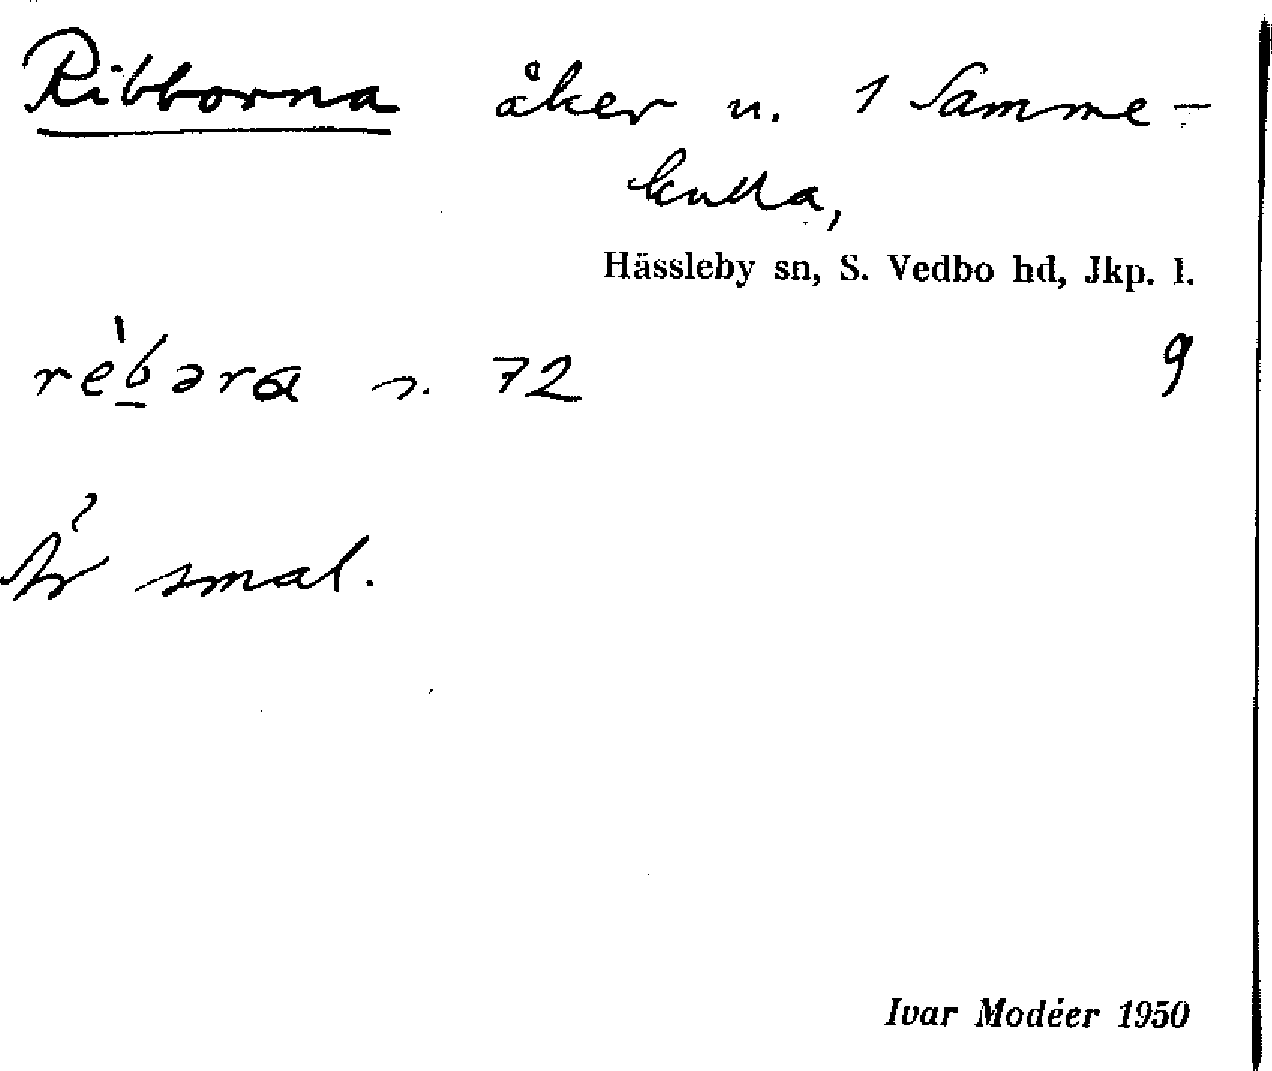 Ribborna åker u. 1 Samme-
kulla,
Hässleby sn, S. Vedbo hd, Jkp. l.
rèbəra s. 72 9
Är smal.
Ivar Modéer 1950